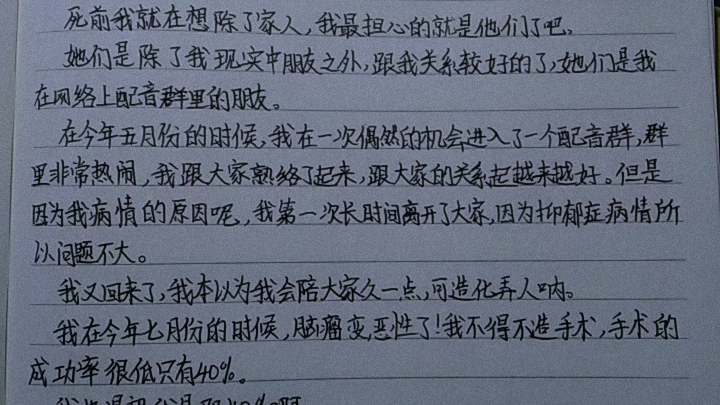 死前我就在想除了家人,我最担心的就是他们了吧。
她们是除了我现实中朋友之外,跟我关系较好的了,她们是我
在网络上配音群里的朋友。
在今年五月份的时候,我在一次偶然的机会进入了一个配音群,群
里非常热闹,我跟大家熟络了起来,跟大家的关系起越来越好。但是
因为我病情的原因呢,我第一次长时间离开了大家,因为抑郁症病情所
以问题不大。
我又回来了,我本以为我会陪大家久一点,可造化弄人呐。
我在今年七月份的时候,脑瘤变恶性了!我不得不造手术,手术的
成功率很低只有40%。